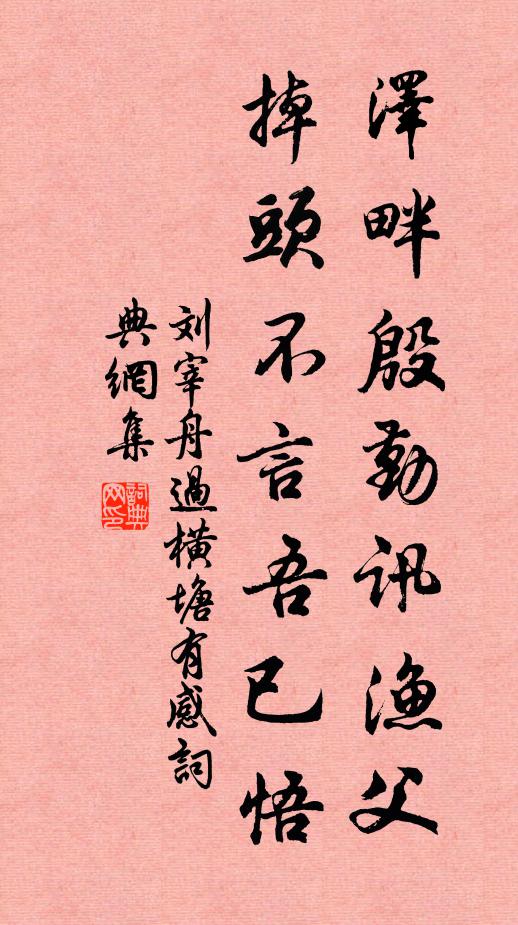 澤畔殷勤訊漁父
掉頭不言吾已悟
刘宰舟過橫塘有感詞
典網集
詞典
网印